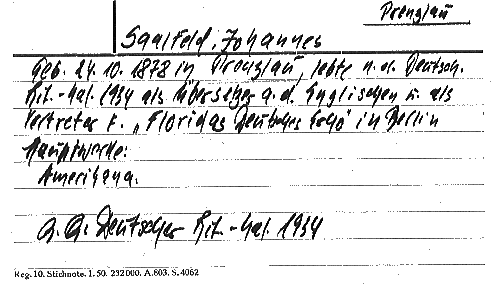 Prenzlau
Saalfeld, Johannes
Geb. 24. 10. 1878 in Prenzlau, lebte n. d. Deutsch.
Lit.-Kal. 1934 als Übersetzer a. d. Englischen u. als
Vertreter f. „Floridas Deutsches Echo" in Berlin
Hauptwerke:
Amerikana.
a. a. Deutscher Lit.-Kal. 1934
Reg. 10. Stichnote. 1. 50. 232000. A. 603. S. 4062